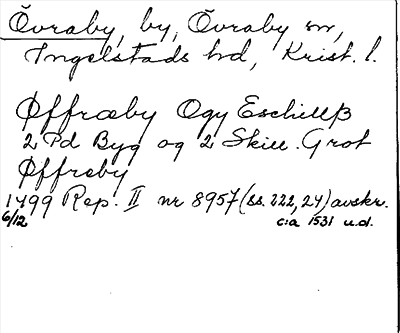 Övraby, by, Övraby sn,
Ingelstads hd, Krist. l.
Øffræby Ogy Eschillß
2 Pd Byg og 2 Skill. Grot
Øffreby
1499 Rep. II nr 8957 (ss. 222, 24) avskr.
6/12 c:a 1531 u.d.